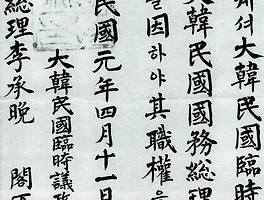 셔大韓民國臨時
大韓民國國務總理
을因하야其職權을
民國元年四月十一日
大韓民國臨時議政
總理李承晩 閣下